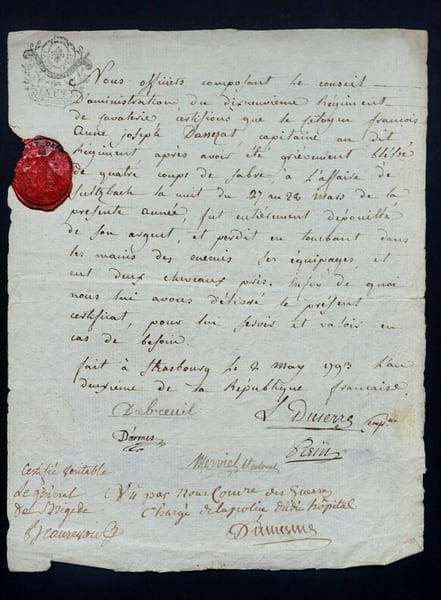 Nous officiers composant le conseil
D'administration du dixneuvieme Régiment
de Cavalerie certifions que le citoyen françois
anne joseph Dassezat, capitaine au dit
Régiment après avoir été grièvement blessé
de quatre coups de sabre, à L'affaire de
la nuit du 27 au 28 mars de la
presente année, fut entierement depouillé
de son argent, et perdit en tombant dans
les mains des enemis ses équipages, et
eut deux chevaux pris. En foy de quoi
nous lui avons délivré le présent
certificat, pour lui servir et valoir en
cas de besoin.
fait à Strasbourg le 2 may 1793 L'an
deuxieme de la République francaise.
Dubreuil
L Duserre
Darmes
Merviel
Certifié veritable
Le général
de Brigade
Vu par Nous Com.re des Guerre
Chargé de la police dudit hôpital
Dumesnil